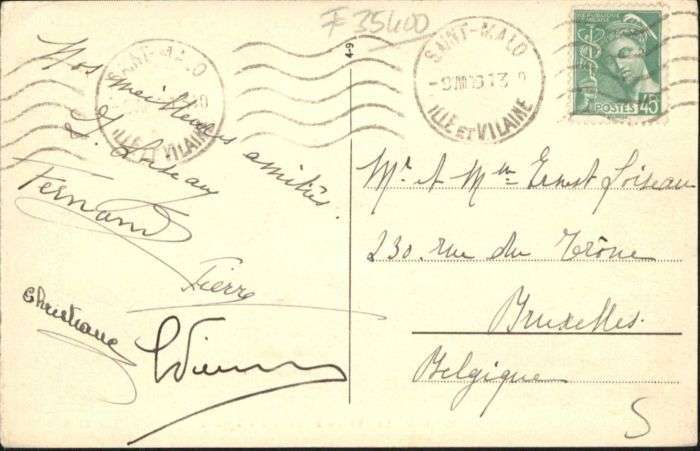 F 35400
4-9
Nos meilleures amitiés.
Fernand
Pierre
Christiane
SAINT-MALO
ILLE ET VILAINE
SAINT-MALO
ILLE ET VILAINE
REPUBLIQUE FRANÇAISE
POSTES 45
Mr et Mme Ernest Loiseau
230. rue du Trône
Bruxelles.
Belgique
S